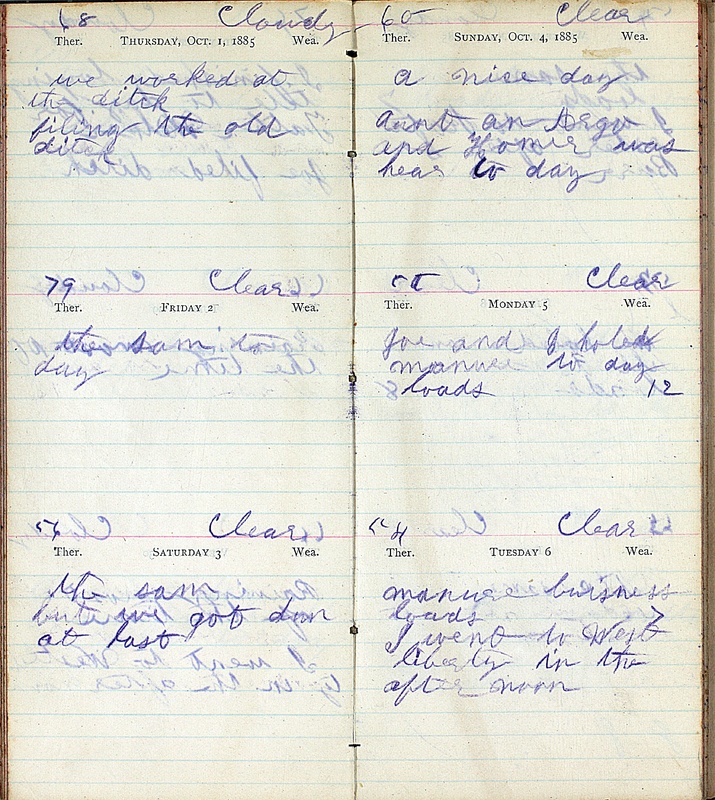 68 Cloudy
Ther. THURSDAY, OCT. 1, 1885 Wea.
we worked at
the ditch
filing the old
ditch
79 Clear
Ther. FRIDAY 2 Wea.
the sam to
day
Clear
Ther. SATURDAY 3 Wea.
the sam
but we got dun
at last
60 Clear
Ther. SUNDAY, OCT. 4, 1885 Wea.
a nice day
aunt an Argo
and Homer was
hear to day
Clear
Ther. MONDAY 5 Wea.
Joe and I holed
manure to day
loads 12
54 Clear
Ther. TUESDAY 6 Wea.
manure buisness
loads 7
I went to West
liberty in the
after noon